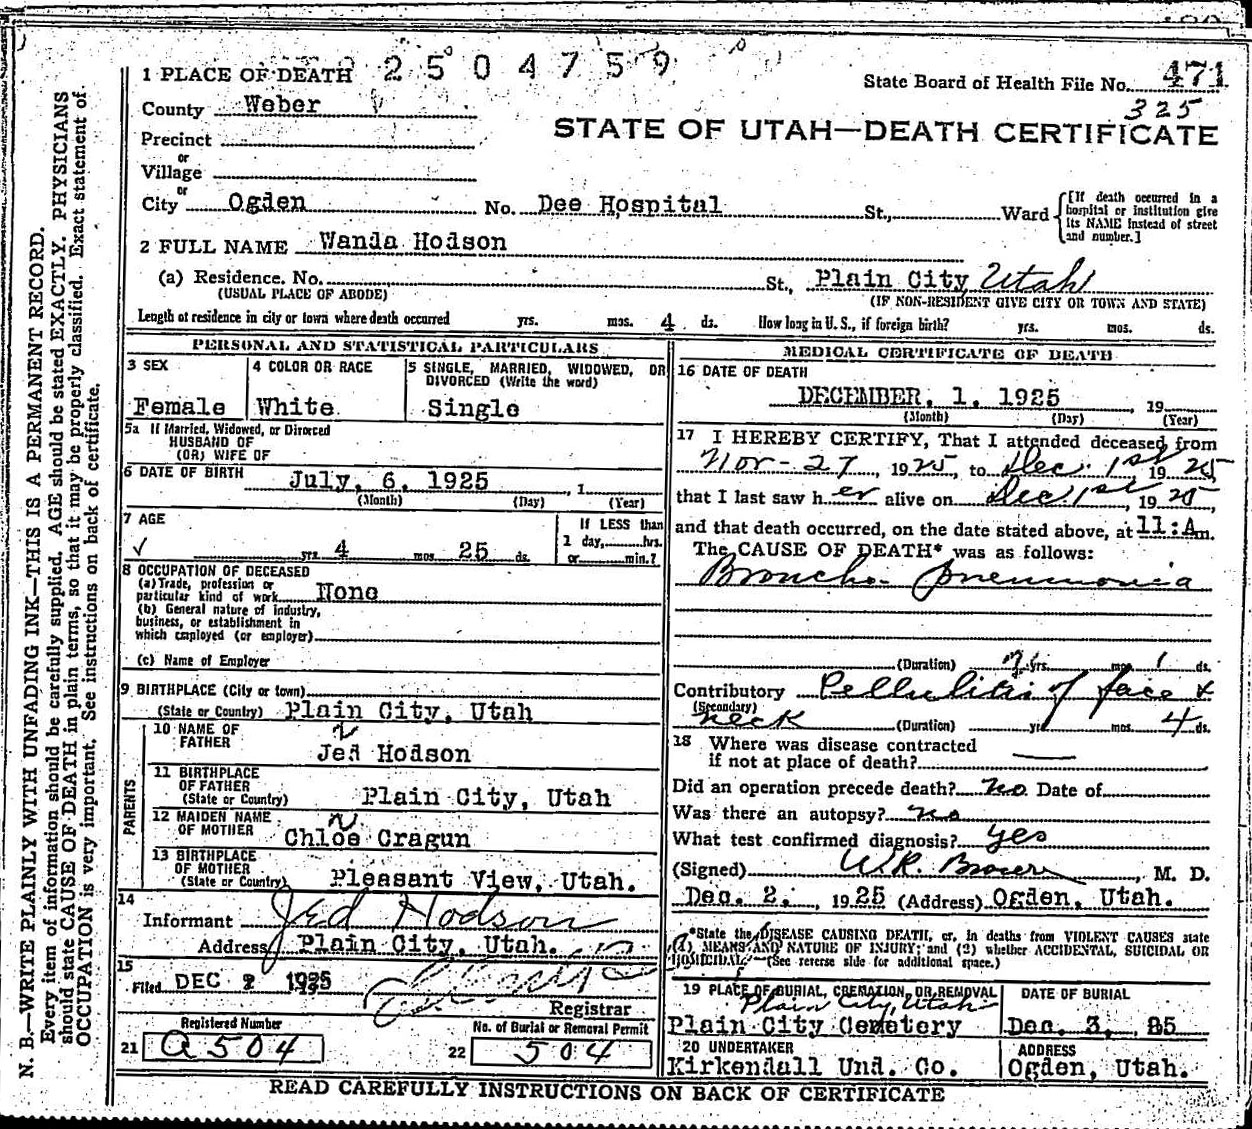 2504759
1 PLACE OF DEATH
State Board of Health File No. 471
325
County Weber
STATE OF UTAH—DEATH CERTIFICATE
Precinct
or
Village
or
City Ogden No. Dee Hospital St., Ward
[If death occurred in a hospital or institution give its NAME instead of street and number.]
2 FULL NAME Wanda Hodson
(a) Residence. No. St., Plain City, Utah
(USUAL PLACE OF ABODE) (IF NON-RESIDENT GIVE CITY OR TOWN AND STATE)
Length of residence in city or town where death occurred yrs. mos. 4 ds. How long in U. S., if foreign birth? yrs. mos. ds.
PERSONAL AND STATISTICAL PARTICULARS
3 SEX
Female
4 COLOR OR RACE
White
5 SINGLE, MARRIED, WIDOWED, OR DIVORCED (Write the word)
Single
5a If Married, Widowed, or Divorced
HUSBAND OF
(OR) WIFE OF
6 DATE OF BIRTH July, 6, 1925, 1
(Month) (Day) (Year)
7 AGE
yrs. 4 mos. 25 ds.
If LESS than
1 day, hrs.
or min.?
8 OCCUPATION OF DECEASED
(a) Trade, profession or
particular kind of work None
(b) General nature of industry,
business, or establishment in
which employed (or employer)
(c) Name of Employer
9 BIRTHPLACE (City or town)
(State or Country) Plain City, Utah
PARENTS
10 NAME OF
FATHER Jed Hodson
11 BIRTHPLACE
OF FATHER
(State or Country) Plain City, Utah
12 MAIDEN NAME
OF MOTHER Chloe Cragun
13 BIRTHPLACE
OF MOTHER
(State or Country) Pleasant View, Utah.
14
Informant Jed Hodson
Address Plain City, Utah.
15
Filed DEC 2 1925
Registrar
Registered Number
21 a504
No. of Burial or Removal Permit
22 504
MEDICAL CERTIFICATE OF DEATH
16 DATE OF DEATH
DECEMBER, 1, 1925, 19
(Month) (Day) (Year)
17 I HEREBY CERTIFY, That I attended deceased from
Nov - 27, 1925, to Dec. 1st 1925
that I last saw her alive on Dec 1st, 1925,
and that death occurred, on the date stated above, at 11:A m.
The CAUSE OF DEATH* was as follows:
Broncho - Pneumonia
(Duration) yrs. mos. 1 ds.
Contributory Cellulitis of face &
(Secondary)
neck (Duration) yrs. mos. 4 ds.
18 Where was disease contracted
if not at place of death?
Did an operation precede death? No Date of
Was there an autopsy? no
What test confirmed diagnosis? yes
(Signed) W.R. Brown, M. D.
Dec. 2, 1925 (Address) Ogden, Utah.
*State the DISEASE CAUSING DEATH, or, in deaths from VIOLENT CAUSES state
(1) MEANS AND NATURE OF INJURY; and (2) whether ACCIDENTAL, SUICIDAL OR
HOMICIDAL. (See reverse side for additional space.)
19 PLACE OF BURIAL, CREMATION, OR REMOVAL
Plain City, Utah
Plain City Cemetery
DATE OF BURIAL
Dec. 3, 25
20 UNDERTAKER
Kirkendall Und. Co.
ADDRESS
Ogden, Utah.
READ CAREFULLY INSTRUCTIONS ON BACK OF CERTIFICATE
N. B.—WRITE PLAINLY WITH UNFADING INK—THIS IS A PERMANENT RECORD.
Every item of information should be carefully supplied. AGE should be stated EXACTLY. PHYSICIANS
should state CAUSE OF DEATH in plain terms, so that it may be properly classified. Exact statement of
OCCUPATION is very important. See instructions on back of certificate.